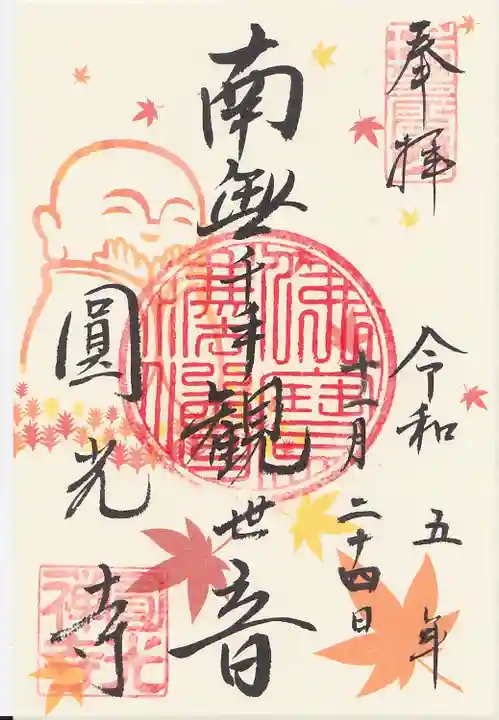 奉拝
令和五年
十一月二十四日
南無千手観世音
圓光寺
圓光禅寺